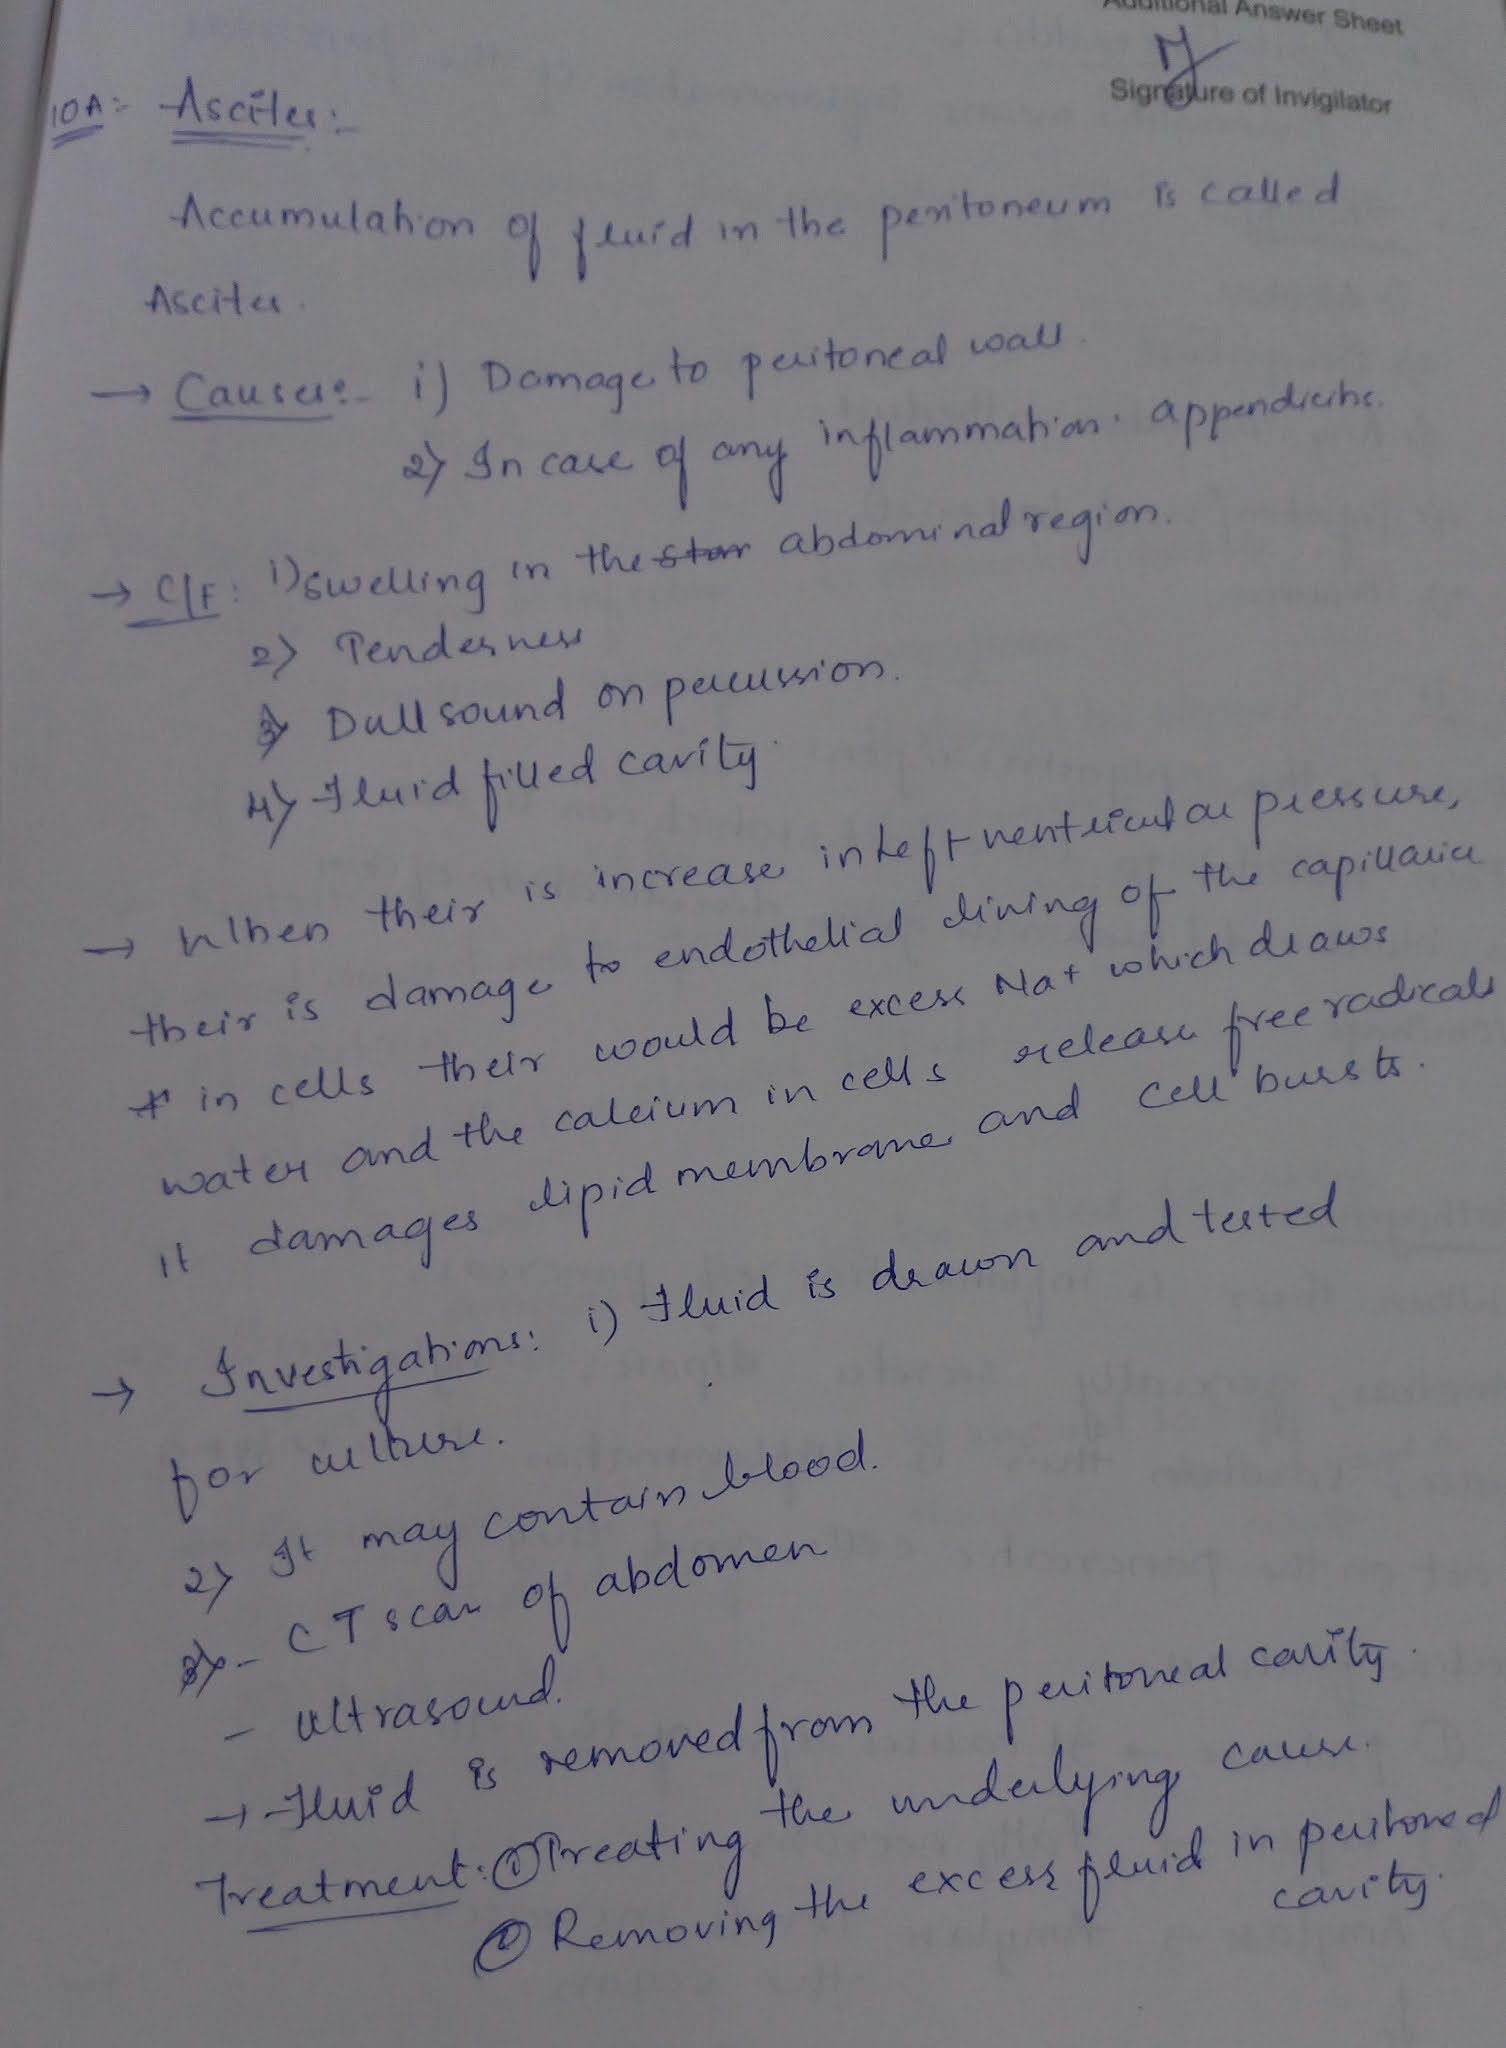 Additional Answer Sheet
Signature of Invigilator
10A:- Ascites:-
Accumulation of fluid in the peritoneum is called
Ascites.
→ Causes:- i) Damage to peritoneal wall.
2) In case of any inflammation. appendicitis.
→ C/F: 1) Swelling in the stom abdominal region.
2) Tenderness
3) Dull sound on percussion.
4) Fluid filled cavity.
→ When their is increase in left ventricular pressure,
their is damage to endothelial lining of the capillaries
* in cells their would be excess Na+ which draws
water and the calcium in cells release free radicals
it damages lipid membrane and cell bursts.
→ Investigations: i) Fluid is drawn and tested
for culture.
2) It may contain blood.
3) - CT scan of abdomen
- Ultrasound.
→ Fluid is removed from the peritoneal cavity.
Treatment: ① Treating the underlying cause.
② Removing the excess fluid in peritoneal
cavity.